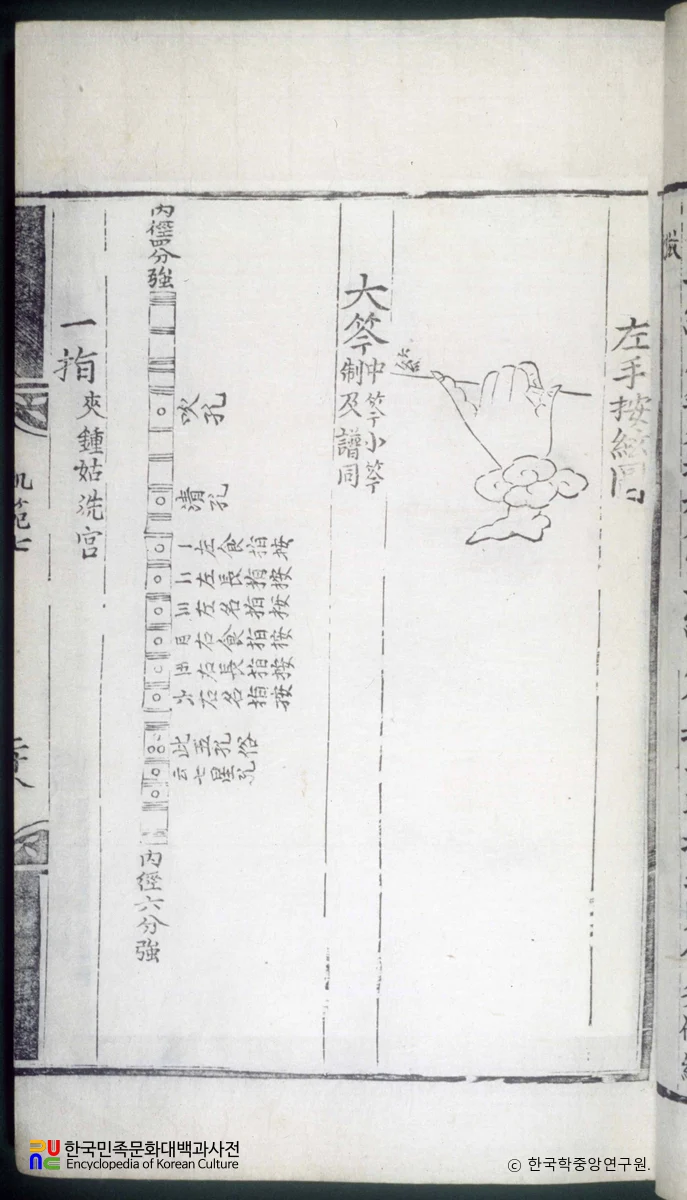 左手按絃圖
絃
大笒 中笒小笒
制及譜同
內徑四分強
吹孔
淸孔
一左食指按
二左長指按
三左名指按
四右食指按
五右長指按
六右名指按
此五孔俗
云七星孔
內徑六分強
一指 夾鍾姑洗宮
軌範七
한국민족문화대백과사전
Encyclopedia of Korean Culture
© 한국학중앙연구원.